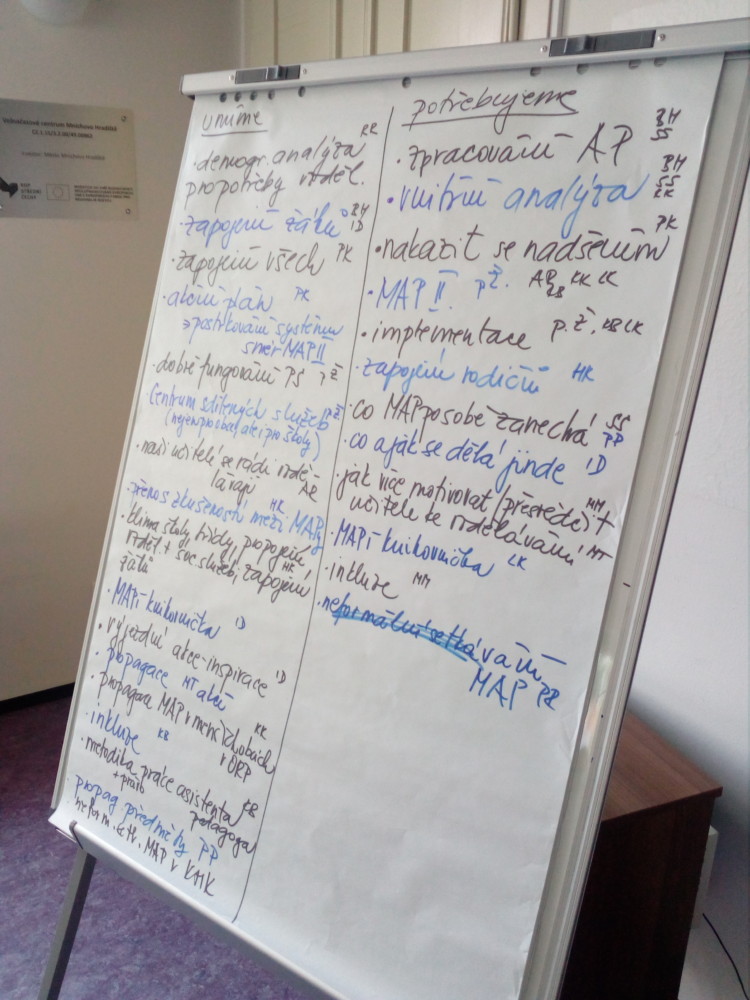 Volnočasové centrum Mnichovo Hradiště
umíme
• demogr. analýza RR
pro potřeby vzděl.
• zapojení žáků BH
ID
• zapojení všech PK
• akční plán PK
→ postrkování systému
směr MAP II
• dobré fungování PS PŽ
• Centrum sdílených služeb PŽ
(nejen pro obce, ale i pro školy)
• naši učitelé se rádi vzdě-
lávají AR
• přenos zkušeností mezi MAPy HK
• klima školy, třídy, propojení
vzděl. + soc. služeb, zapojení HK
žáků
• MAPí knihovnička ID
• výjezdní akce - inspirace ID
• propagace akcí MT
• propagace MAP v menších obcích KK
v ORP
• inkluze KB
• metodika práce asistenta KB
+ praxe pedagoga
• propag. předměty PP
• neform. setk. MAP v KMK
potřebujeme
• zpracování AP BH
SS
• vnitřní analýza BH
SS
KK
• nakazit se nadšením PK
• MAP II. PŽ. AR KK LK
KB
• implementace P.Ž. KB LK
• zapojení rodičů HK
• co MAP po sobě zanechá SS
• co a jak se dělá jinde PP ID
• jak více motivovat (přesvědč.) MM
+
učitele ke vzdělávání MT
• MAPí knihovnička LK
• inkluze MM
• neformální setkávání
MAP PB